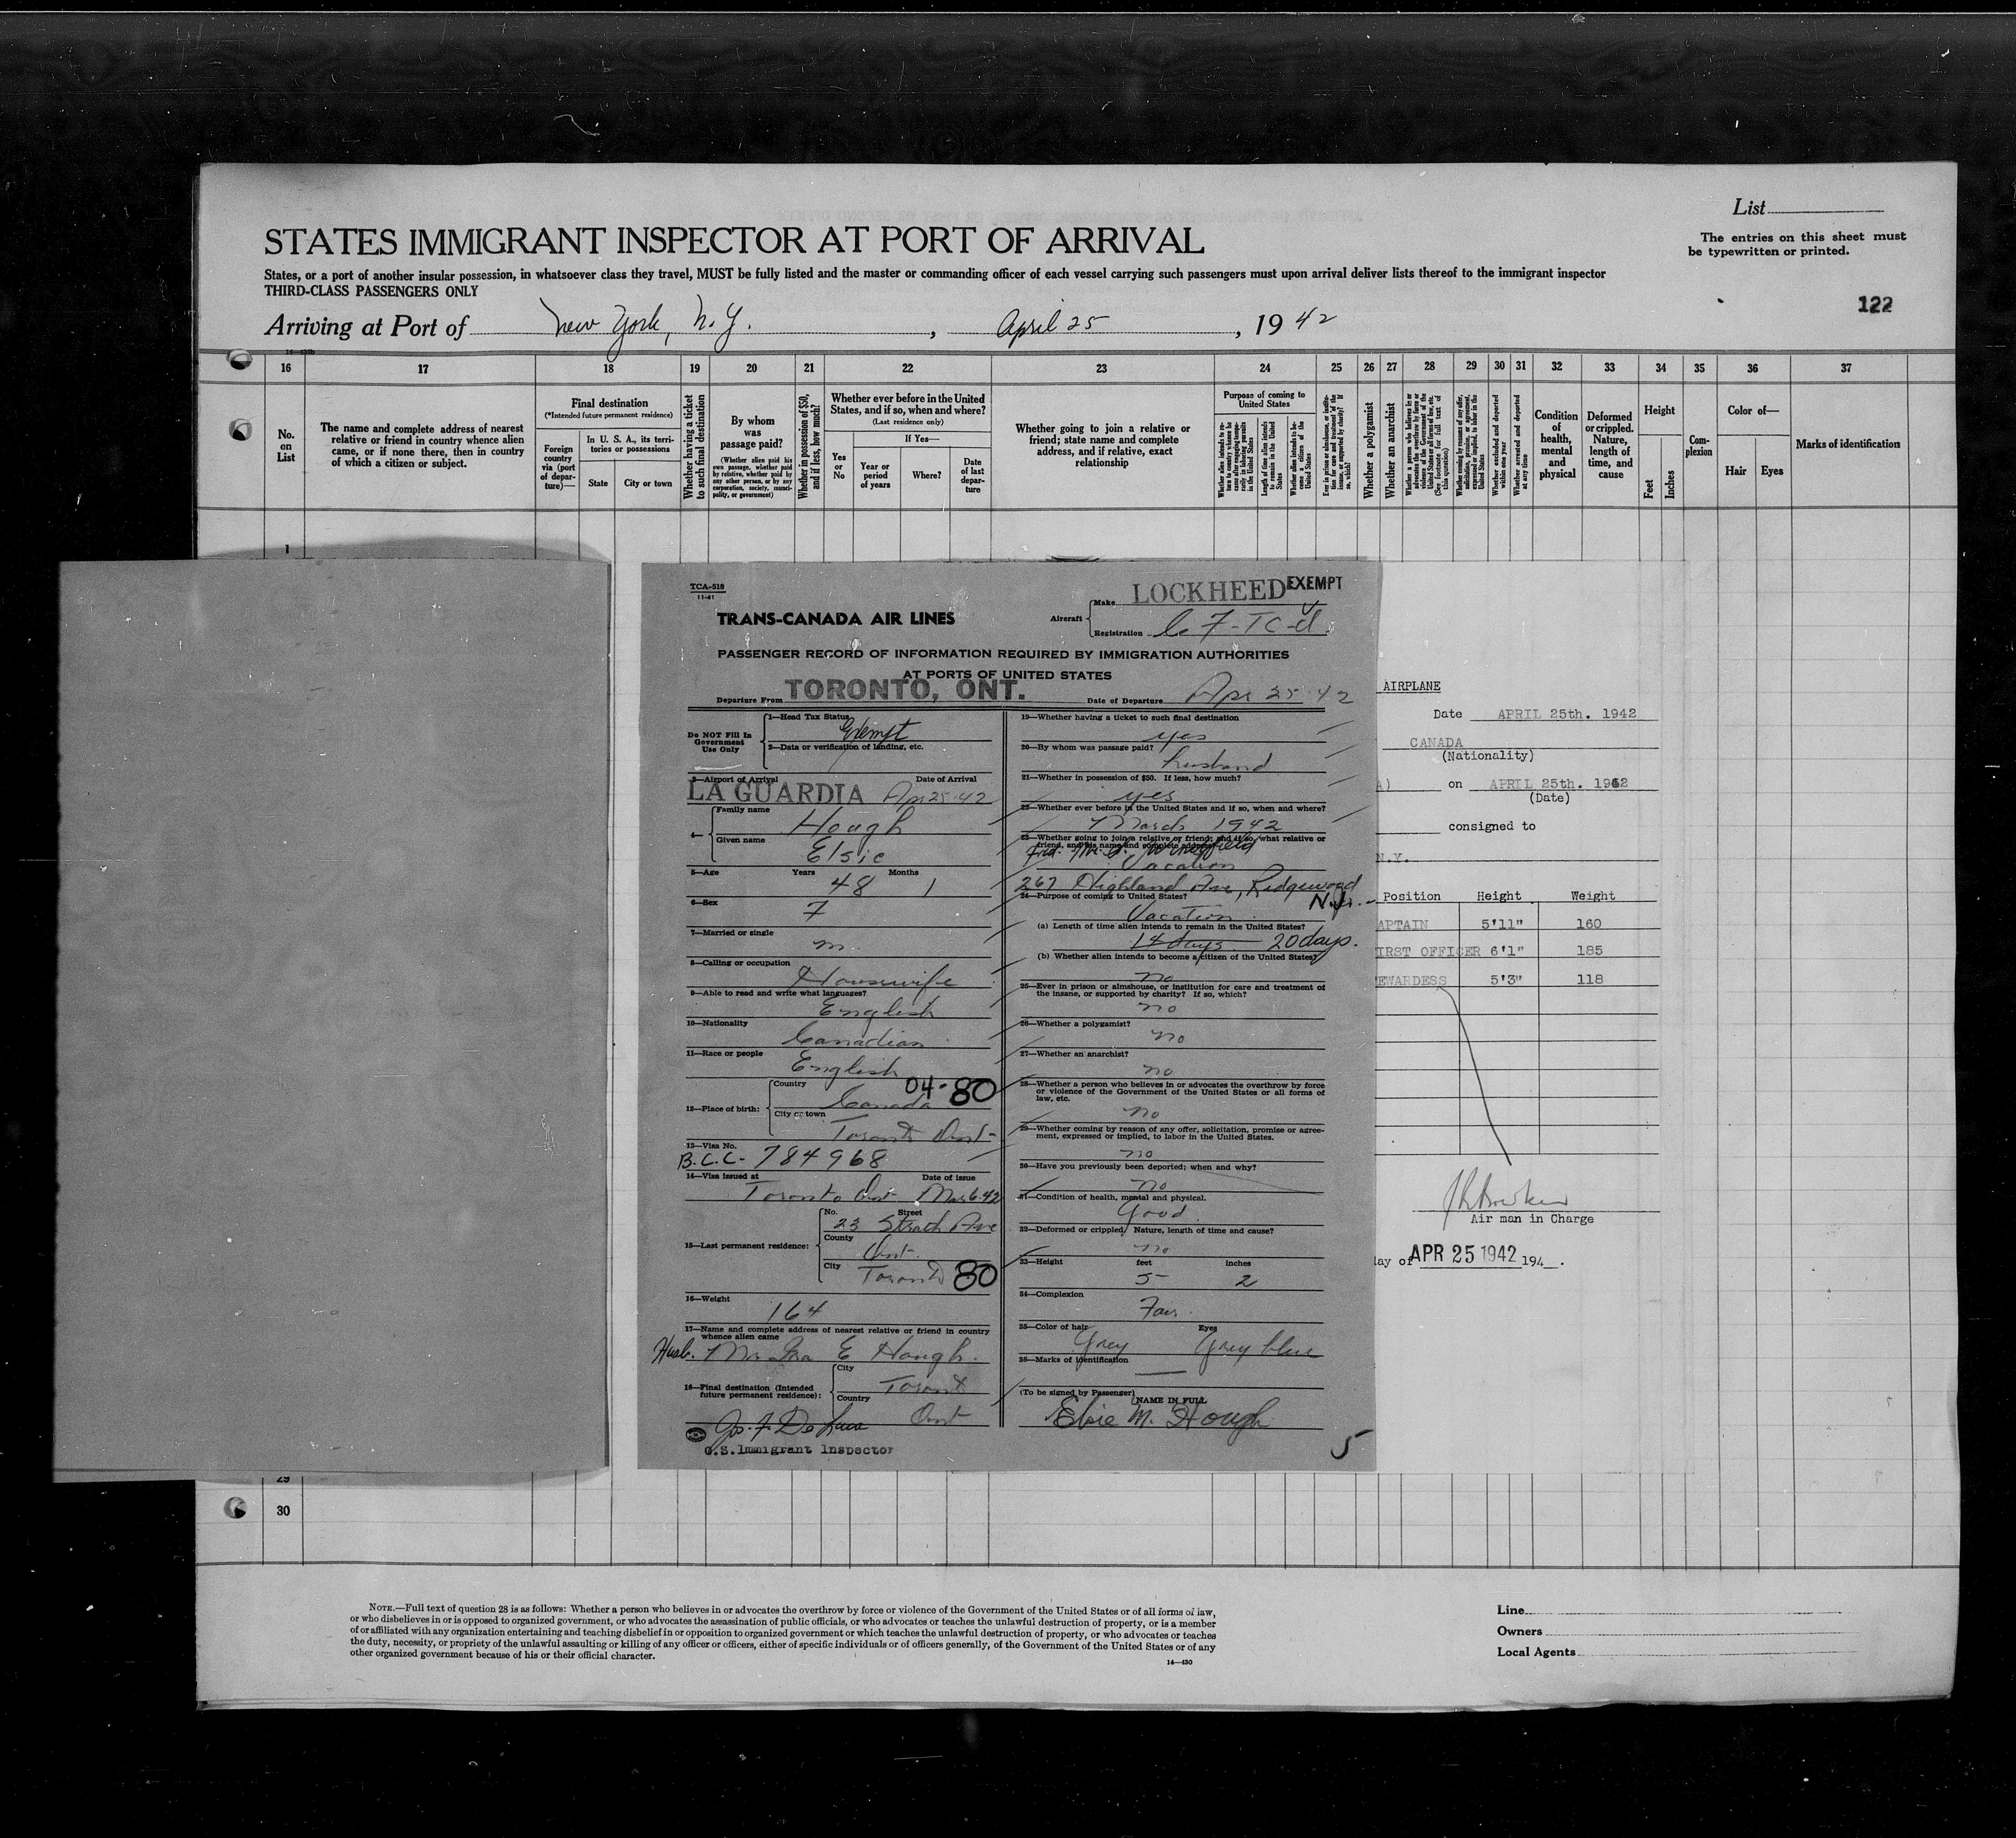 List
STATES IMMIGRANT INSPECTOR AT PORT OF ARRIVAL
The entries on this sheet must
be typewritten or printed.
States, or a port of another insular possession, in whatsoever class they travel, MUST be fully listed and the master or commanding officer of each vessel carrying such passengers must upon arrival deliver lists thereof to the immigrant inspector
THIRD-CLASS PASSENGERS ONLY
122
Arriving at Port of New York, N.Y., April 25, 1942
16 17 18 19 20 21 22 23 24 25 26 27 28 29 30 31 32 33 34 35 36 37
No.
on
List
The name and complete address of nearest
relative or friend in country whence alien
came, or if none there, then in country
of which a citizen or subject.
Final destination
(*Intended future permanent residence)
Foreign
country
via (port
of depar-
ture)—
In U. S. A., its terri-
tories or possessions
State
City or town
Whether having a ticket
to such final destination
By whom
was
passage paid?
(Whether alien paid his
own passage, whether paid
by relative, whether paid by
any other person, or by any
corporation, society, munici-
pality, or government)
Whether in possession of $50,
and if less, how much?
Whether ever before in the United
States, and if so, when and where?
(Last residence only)
Yes
or
No
If Yes—
Year or
period
of years
Where?
Date
of last
depar-
ture
Whether going to join a relative or
friend; state name and complete
address, and if relative, exact
relationship
Purpose of coming to
United States
Length of time alien intends
to remain in the United
States
Whether alien intends to be-
come a citizen of the
United States
Whether a polygamist
Whether an anarchist
Whether excluded and deported
within one year
Whether arrested and deported
at any time
Condition
of
health,
mental
and
physical
Deformed
or crippled.
Nature,
length of
time, and
cause
Height
Feet
Inches
Com-
plexion
Color of—
Hair
Eyes
Marks of identification
1
TCA-518
11-41
TRANS-CANADA AIR LINES
Aircraft
Make LOCKHEED EXEMPT
Registration
PASSENGER RECORD OF INFORMATION REQUIRED BY IMMIGRATION AUTHORITIES
AT PORTS OF UNITED STATES
Departure From TORONTO, ONT.
Date of Departure Apr 25-42
Do NOT Fill In
Government
Use Only
1—Head Tax Status
Exempt
2—Data or verification of landing, etc.
3—Airport of Arrival Date of Arrival
LA GUARDIA Apr 25-42
4—
Family name
Hough
Given name
Elsie
5—Age Years Months
48 1
6—Sex
F
7—Married or single
m
8—Calling or occupation
Housewife
9—Able to read and write what languages?
English
10—Nationality
Canadian
11—Race or people
English
04-80
12—Place of birth:
Country
Canada
City or town
Toronto Ont
13—Visa No.
B.C.C- 784968
14—Visa issued at Date of issue
Toronto Ont Mar 6-42
15—Last permanent residence:
No. Street
23 Strath Ave
County
Ont.
City
Toronto 80
16—Weight
164
17—Name and complete address of nearest relative or friend in country
whence alien came
Husb. Mr Ira E Hough.
18—Final destination (Intended
future permanent residence):
City
Toronto
Country
Ont
U.S. Immigrant Inspector
19—Whether having a ticket to such final destination
yes
20—By whom was passage paid?
husband
21—Whether in possession of $50. If less, how much?
yes
22—Whether ever before in the United States and if so, when and where?
March 1942
23—Whether going to join a relative or friend; and if so, what relative or
friend, and his name and complete address
Vacation
267 Highland Ave, Ridgewood
N.J.
24—Purpose of coming to United States?
Vacation
(a) Length of time alien intends to remain in the United States?
14 days 20 days.
(b) Whether alien intends to become a citizen of the United States?
no
25—Ever in prison or almshouse, or institution for care and treatment of
the insane, or supported by charity? If so, which?
no
26—Whether a polygamist?
no
27—Whether an anarchist?
no
28—Whether a person who believes in or advocates the overthrow by force
or violence of the Government of the United States or all forms of
law, etc.
no
29—Whether coming by reason of any offer, solicitation, promise or agree-
ment, expressed or implied, to labor in the United States.
no
30—Have you previously been deported; when and why?
no
31—Condition of health, mental and physical.
Good
32—Deformed or crippled. Nature, length of time and cause?
no
33—Height feet inches
5 2
34—Complexion
Fair
35—Color of hair Eyes
Grey Grey blue
36—Marks of identification
—
(To be signed by Passenger)
NAME IN FULL
Elsie M. Hough
5
AIRPLANE
Date APRIL 25th. 1942
CANADA
(Nationality)
A) on APRIL 25th. 1942
(Date)
consigned to
N.Y.
Position Height Weight
APTAIN 5'11" 160
IRST OFFICER 6'1" 185
EWARDESS 5'3" 118
Air man in Charge
day of APR 25 1942 194 .
29
30
NOTE.—Full text of question 28 is as follows: Whether a person who believes in or advocates the overthrow by force or violence of the Government of the United States or of all forms of law,
or who disbelieves in or is opposed to organized government, or who advocates the assassination of public officials, or who advocates or teaches the unlawful destruction of property, or is a member
of or affiliated with any organization entertaining and teaching disbelief in or opposition to organized government or which teaches the unlawful destruction of property, or who advocates or teaches
the duty, necessity, or propriety of the unlawful assaulting or killing of any officer or officers, either of specific individuals or of officers generally, of the Government of the United States or of any
other organized government because of his or their official character.
14—430
Line
Owners
Local Agents